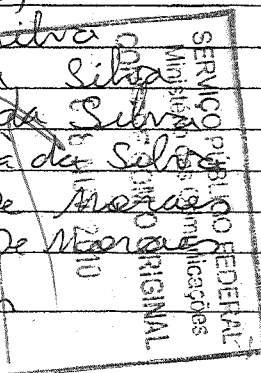 Silva
Silva
da Silva
a da Silva
de Moraes
De Moraes
SERVIÇO PÚBLICO FEDERAL
Ministério das Comunicações
ORIGINAL